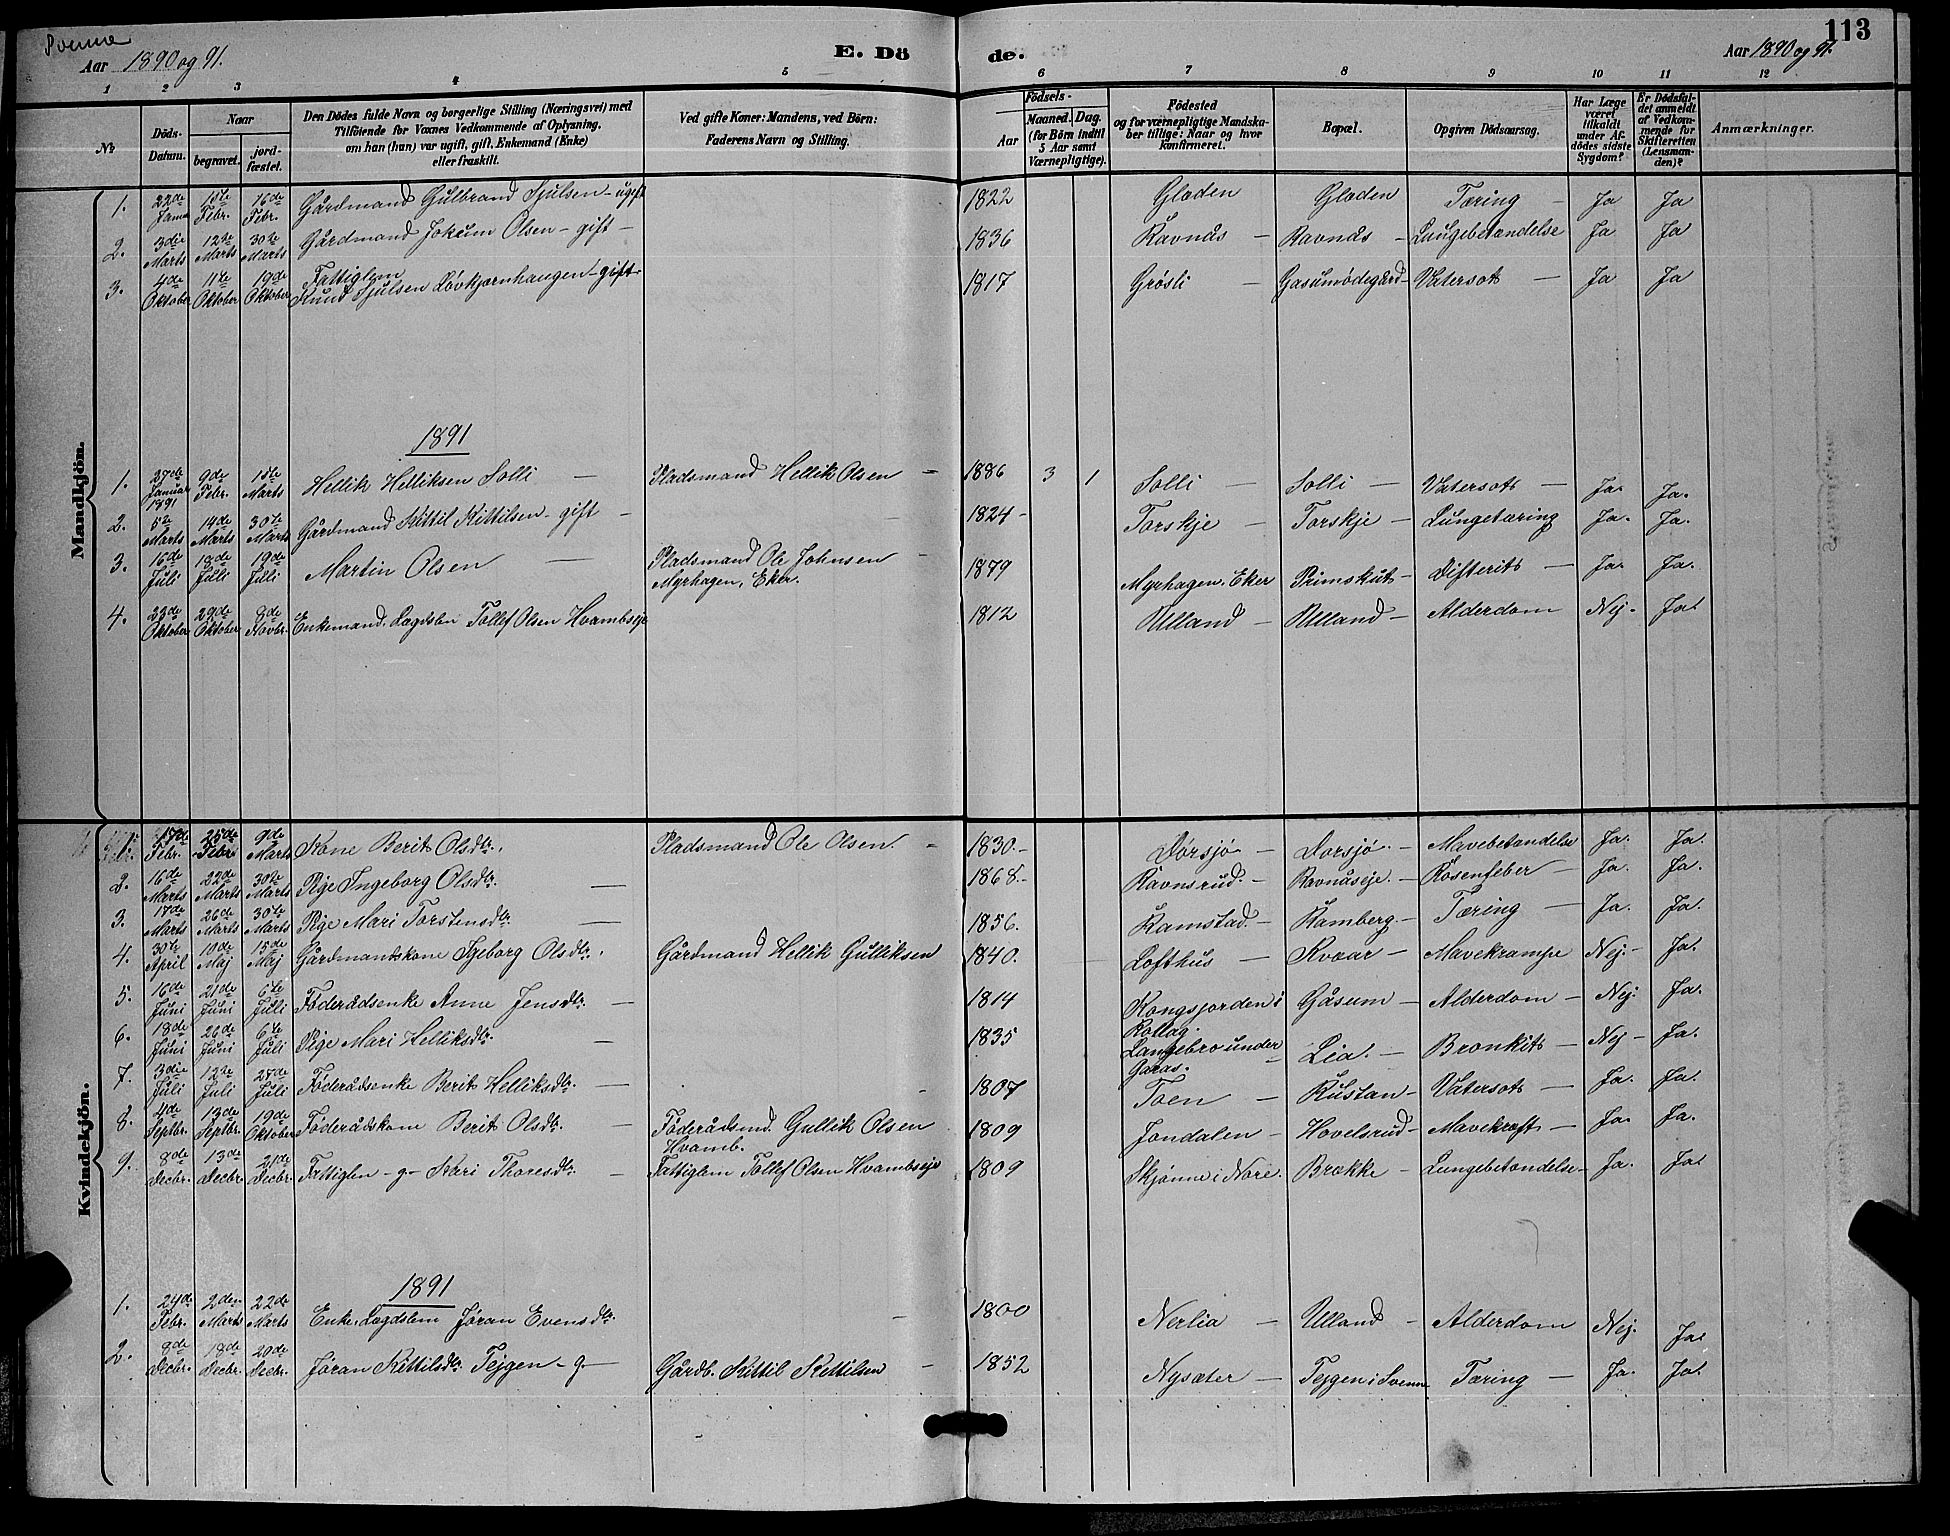 Svenne
Aar 1890 og 91.
E. Dö
de.
Aar 1890 og 91.
113
1 2 3 4 5 6 7 8 9 10 11 12
№
Döds-Datum.
Naar
begravet.
jord-fæstet.
Den Dödes fulde Navn og borgerlige Stilling (Næringsvei) med
Tilföiende for Voxnes Vedkommende af Oplysning,
om han (hun) var ugift, gift, Enkemand (Enke)
eller fraskilt.
Ved gifte Koner: Mandens, ved Börn:
Faderens Navn og Stilling.
Aar
Födsels-
Maaned. Dag.
(for Börn indtil
5 Aar samt
Værnepligtige).
Födested
og for værnepligtige Mandska-
ber tillige: Naar og hvor
konfirmeret.
Bopæl.
Opgiven Dödsaarsag.
Har Læge
været
tilkaldt
under Af-
dödes sidste
Sygdom?
Er Dödsfal-
det anmeldt
af Vedkom-
mende for
Skifteretten
(Lensman-
den)?
Anmærkninger.
Mandkjön.
1. 22de Janua 15te Febr. 16de Febr. Gårdmand Gulbrand Sjulsen - ugift 1822 Gladen Gladen Tæring - Ja Ja
2. 3die Marts 12te Marts 30te Marts Gårdmand Jokum Olsen - gift - 1836 Ravnås - Ravnås - Lungebetændelse Ja Ja
3. 4de Oktober 11te Oktober 19de Oktober Fattiglem
Knud Sjulsen Løvkjernhaugen - gift. 1817 Grøsli - Gasumødegård - Vatersot - Ja Ja
1891
1. 27de Januar 1891 9de Febr. 15te Marts Hellik Helliksen Solli - Pladsmand Hellik Olsen - 1886 3 1 Solli - Solli - Vatersot - Ja. Ja.
2. 5te Marts 14de Marts 30te Marts Gårdmand Kittil Kittilsen - gift - 1824 - Torskje - Torskje - Lungetæring Ja. Ja.
3. 16de Juli 18de Juli 19de Juli Martin Olsen - Pladsmand Ole Johnsen
Myrhagen, Eker. 1879 Myrhagen. Eker Primskut - Difterit - Ja. Ja.
4. 23de Oktober 29de Oktober 8de Novbr. Enkemand, Lægdslem Tollef Olsen Hvambseje 1812 Ulland - Ulland - Alderdom Nej. Ja.
Kvindekjön.
1. 17de Febr. 25de Febr. 9de Marts Kone Berit Olsdtr. Pladsmand Ole Olsen. - 1830. - Dørsjø - Dorsjø. - Mavebetændelse Ja. Ja.
2. 16de Marts 22de Marts 30te Marts Pige Ingeborg Olsdtr. - 1868. - Ravnsrud. - Ravnåseje. - Rosenfeber - Ja. Ja.
3. 17de Marts 26de Marts 30te Marts Pige Mari Torstensdtr. - 1856. Ramstad. - Ramberg. - Tæring - Ja. Ja.
4. 30te April 10de Maj 15de Maj Gårdmandskone Igeborg Olsdtr. Gårdmand Hellik Gulliksen 1840. Lofthus - Kvaar - Mavekrampe Nej. - Ja.
5. 16de Juni 21de Juni 6te Juli Føderådsenke Anne Jensdtr. - 1814 Kongsjorden i
Rollag. Gåsum - Alderdom - Nej. Ja.
6. 18de Juni 26de Juni 6te Juli Pige Mari Helliksdtr. - 1835 Langebro under
Garås. Lia. - Bronkit - Nej - Ja.
7. 3die Juli 12te Juli 27de Juli Føderådsenke Berit Helliksdtr. - 1807 Toen - Rustan - Vatersot - Ja. Ja.
8. 4de Septbr. 13de Septbr. 19de Oktober Føderådskone Berit Olsdtr. - Føderådsmd. Gullik Olsen
Hvamb. 1809 Jondalen - Hovelsrud - Mavekræft - Ja. Ja.
9. 8de Decbr. 13de Decbr. 21de Decbr. Fattiglem - g - Kari Thoresdtr. - Fattiglem Tollef Olsen Hvambseje 1809 Skjønne i Nore. Brække - Lungebetændelse - Ja. Ja.
1891
1. 24de Febr. 2den Marts 22de Marts Enke, Lægdslem Jøran Evensdtr. - 1800 Nerlia - Ulland - Alderdom Nej. Ja.
2. 8de Decbr. 18de Decbr. 20de Decbr. Jøran Kittilsdtr. Tejgen - g - Gårdb. Kittil Kittilsen - 1852 Nysæter - Tejgen i Svenne Tæring - Ja. Ja.